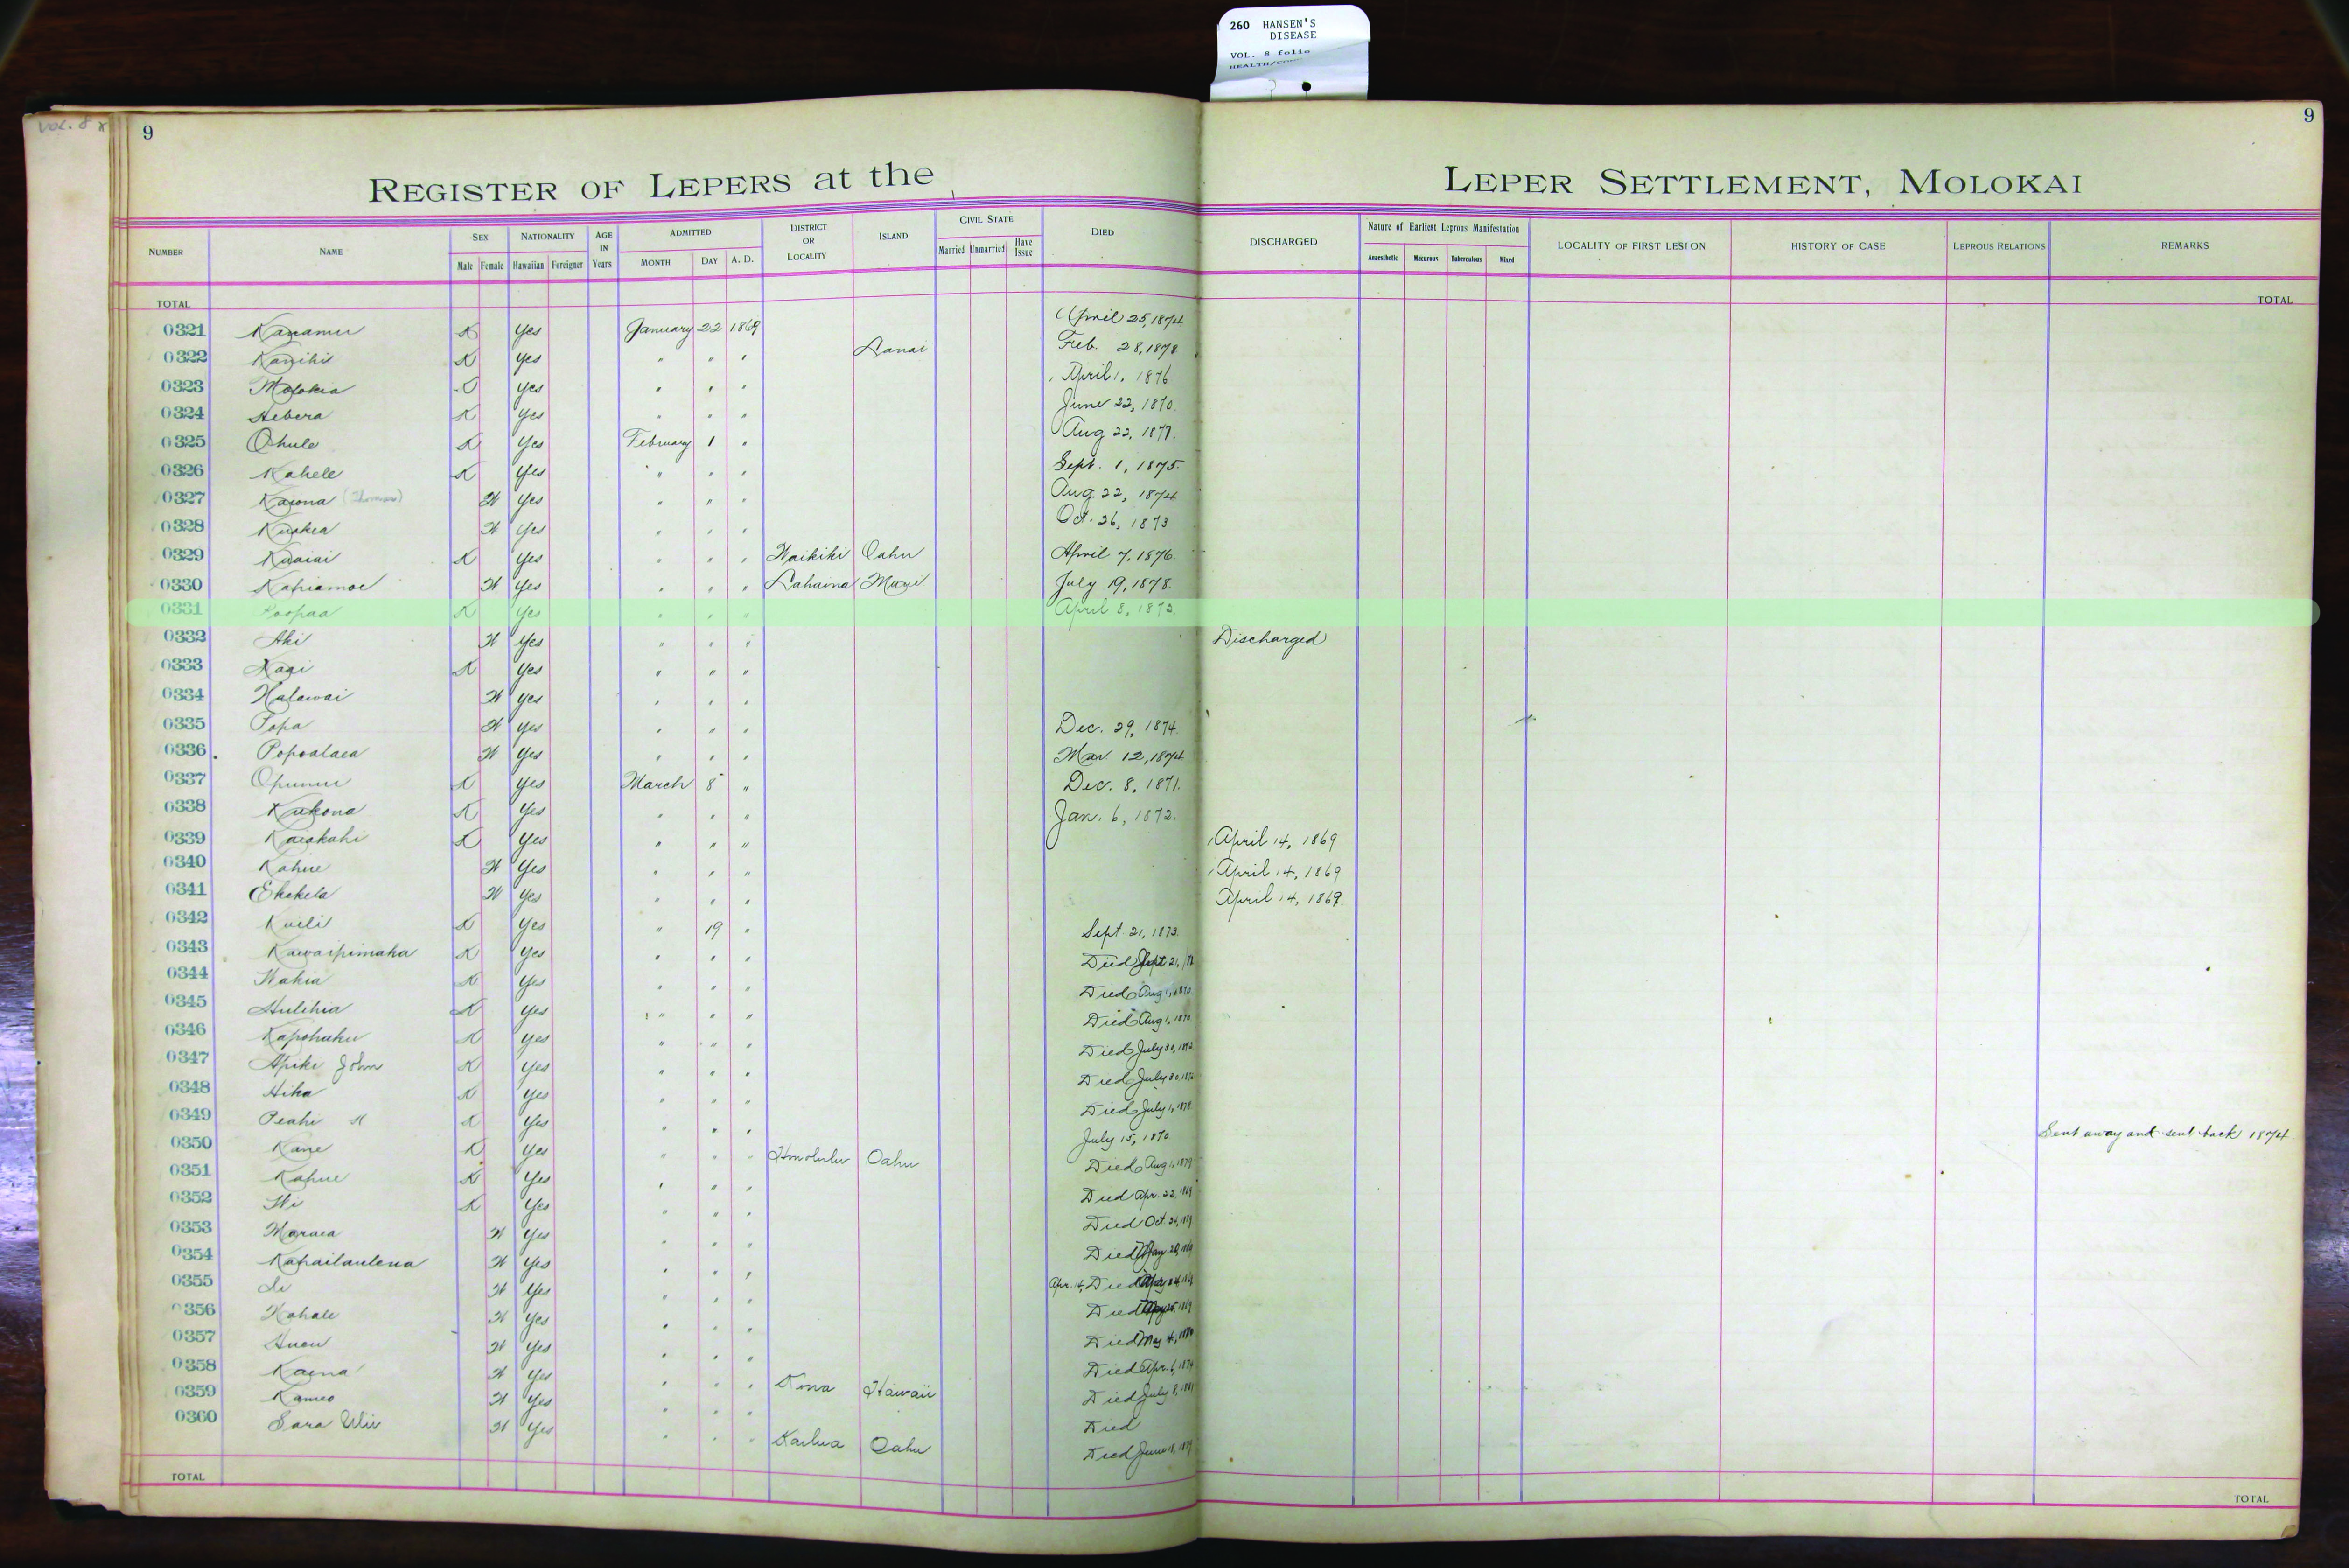 260 HANSEN'S
DISEASE
VOL. 8 folio
VOL. 8
9
9
REGISTER OF LEPERS at the LEPER SETTLEMENT, MOLOKAI
NUMBER NAME SEX Male Female NATIONALITY Hawaiian Foreigner AGE IN Years ADMITTED MONTH DAY A. D. DISTRICT OR LOCALITY ISLAND CIVIL STATE Married Unmarried Have Issue DIED DISCHARGED Nature of Earliest Leprous Manifestation Anaesthetic Macurous Tuberculous Mixed LOCALITY OF FIRST LESION HISTORY OF CASE LEPROUS RELATIONS REMARKS
TOTAL TOTAL
0321 Kanamu K Yes January 22 1869 April 25, 1874
0322 Kanihi K Yes " " " Lanai Feb. 28, 1878
0323 Molokia Yes " " " April 1, 1876
0324 Hebera K Yes " " " June 22, 1870
0325 Ohule K Yes February 1 " Aug 22, 1877.
0326 Kahele K Yes " " " Sept. 1, 1875.
0327 Kaiona (Thomas) W Yes " " " Aug. 22, 1874
0328 Kuokea W Yes " " " Oct. 26, 1873
0329 Kuaiai K Yes " " " Waikiki Oahu April 7, 1876.
0330 Kahiamoe W Yes " " " Lahaina Maui July 19, 1878.
0331 Poopaa K Yes " " " April 8, 1872.
0332 Aki W Yes " " " Discharged
0333 Kaai K Yes " " "
0334 Halawai W Yes " " "
0335 Popa W Yes " " " Dec. 29, 1874.
0336 Popoalaea W Yes " " " Mar. 12, 1874
0337 Opunui K Yes March 8 " Dec. 8, 1871.
0338 Kukona K Yes " " " Jan. 6, 1872.
0339 Kaiakahi K Yes " " " April 14, 1869
0340 Kahue W Yes " " " April 14, 1869
0341 Ekekela W Yes " " " April 14, 1869.
0342 Kuili K Yes " 19 " Sept. 21, 1873.
0343 Kawaipimaka K Yes " " " Died Sept 21,
0344 Wakia K Yes " " " Died Aug 1, 1870
0345 Hulihia K Yes " " " Died Aug 1, 1870
0346 Kapohaku K Yes " " " Died July 30, 1872
0347 Apiki John K Yes " " " Died July 30, 1872
0348 Hika K Yes " " " Died July 1, 1878
0349 Peahi K Yes " " " July 15, 1870. Sent away and sent back 1874
0350 Kane K Yes " " " Honolulu Oahu Died Aug 1, 1879
0351 Kahue K Yes " " " Died Apr. 22, 1869
0352 Wi K Yes " " " Died Oct. 24, 1879
0353 Maraea W Yes " " " Died
0354 Kahailaulena W Yes " " " Apr. 14, Died
0355 Li W Yes " " " Died
0356 Kahale W Yes " " " Died May 4, 1880
0357 Anou W Yes " " " Died Apr. 6, 1874
0358 Kaena W Yes " " " Kona Hawaii Died July 8, 1881
0359 Kameo W Yes " " " Died
0360 Sara Wiu W Yes " " " Kailua Oahu Died June 18, 1879
TOTAL TOTAL